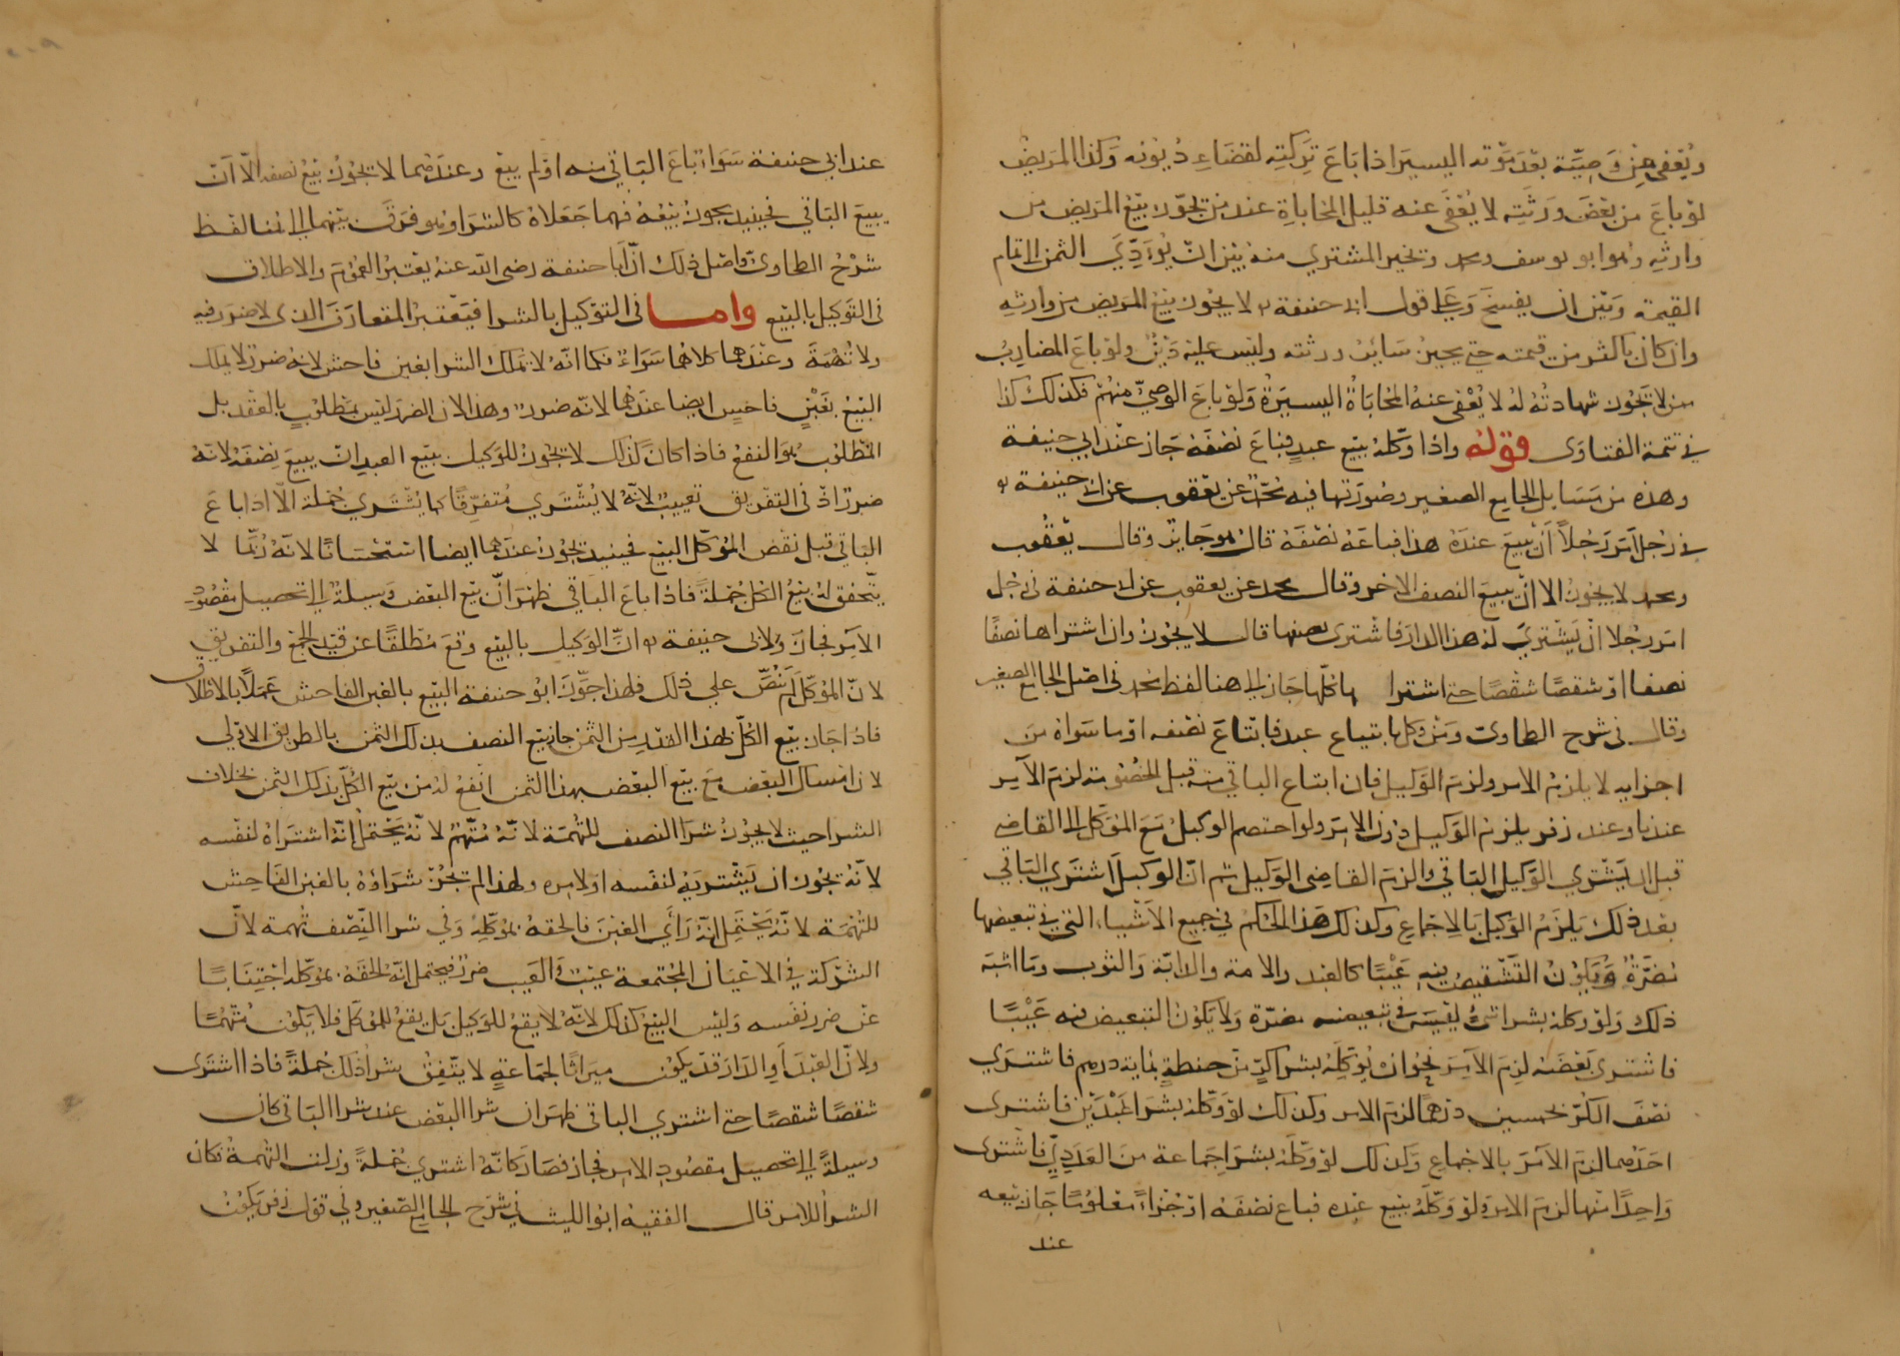 ويعفى من وصية بعد موته اليسير اذا باع تركته لقضاء ديونه وكذا المريض
لو باع من بعض ورثته لا يعفى عنه قليل المحاباة عند من يجوز بيع المريض من
وارثه وهو ابو يوسف ومحمد وتخير المشتري منه بين ان يؤدي الثمن الى تمام
القيمة وبين ان يفسخ وعلى قول ابي حنيفة لا يجوز بيع المريض من وارثه
وان كان باكثر من قيمته حتى يجيز سائر ورثته وليس عليه دين ولو باع المضارب
من لا تجوز شهادته له لا يعفى عنه المحاباة اليسيرة ولو باع الوصي منهم فكذلك كذا
في تتمة الفتاوى قوله واذا وكله ببيع عبد فباع نصفه جاز عند ابي حنيفة
وهذه من مسايل الجامع الصغير وصورتها فيه محمد عن يعقوب عن ابي حنيفة
في رجل امر رجلا ان يبيع عبده هذا فباعه نصفه قال هو جايز وقال يعقوب
ومحمد لا يجوز الا ان يبيع النصف الاخر وقال محمد عن يعقوب عن ابي حنيفة في رجل
امر رجلا ان يشتري له هذا الدار فاشترى بعضها قال لا يجوز وان اشتراها نصفا
نصفا او شقصا شقصا حتى اشترا ها كلها جاز الى هنا لفظ محمد في اصل الجامع الصغير
وقال في شرح الطحاوي ومن وكل بابتياع عبد فابتاع نصفه او ما سواه من
اجزايه لا يلزم الامر ولزم الوكيل فان ابتاع الباقي منه قبل الخصومة لزم الآمر
عندنا وعند زفر يلزم الوكيل دون الآمر ولو اختصم الوكيل مع الموكل الى القاضي
قبل ان يشتري الوكيل الباقي والزم القاضي الوكيل ثم ان الوكيل اشترى الباقي
بعد ذلك يلزم الوكيل بالاجماع وكذلك هذا الحكم في جميع الاشياء التي في تبعيضها
مضرة ويكون التشقيص فيه عيبا كالعبد والامة والدابة والثوب وما اشبه
ذلك ولو وكله بشرا شئ ليس في تبعيضه مضرة ولا يكون التبعيض فيه عيبا
فاشترى بعضه لزم الآمر نحو ان يوكله بشرا كر من حنطة بماية درهم فاشترى
نصف الكر بخمسين درهما لزم الامر وكذلك لو وكله بشرا عبدين فاشترى
احدهما لزم الآمر بالاجماع وكذلك لو وكله بشرا جماعة من العدديه فاشترى
واحدا منها لزم الامر ولو وكله ببيع عبده فباع نصفه او جزاء معلوما جاز بيعه
عند
عند ابي حنيفة سواء باع الباقي منه او لم يبع وعندهما لا يجوز بيع نصفه الا ان
يبيع الباقي فحينيذ يجوز بيعه فهما جعلاه كالشرا وهو فرق بينهما الى هنا لفظ
شرح الطحاوي واصل ذلك ان ابا حنيفة رضى الله عنه يعتبر العموم والاطلاق
في التوكيل بالبيع واما في التوكيل بالشرا فيعتبر المتعارف الذي لا ضرر فيه
ولا تهمة وعندهما كلاهما سواء فكما انه لا تملك الشرا بغبن فاحش لانه ضرر لا يملك
البيع بغبن فاحش ايضا عندهما لانه ضرر وهذا لان الضرر ليس بمطلوب بالعقد بل
المطلوب هو النفع فاذا كان كذلك لا يجوز للوكيل ببيع العبد ان يبيع نصفه لانه
ضرر اذ في التفريق تعييب لانه لا يشترى متفرقا كما يشترى جملة الا اذا باع
الباقي قبل نقض الموكل البيع فحينيذ يجوز عندهما ايضا استحسانا لانه ربما لا
يتحقق له بيع الكل جملة فاذا باع الباقي ظهر ان بيع البعض وسيلة الى تحصيل مقصود
الآمر فجاز ولابي حنيفة ان الوكيل بالبيع وقع مطلقا عن قيد الجمع والتفريق
لان الموكل لم ينص علي ذلك فلهذا جوز ابو حنيفة البيع بالغبن الفاحش عملا بالاطلاق
فاذا جاز بيع الكل بهذا القدر من الثمن جاز بيع النصف بذلك الثمن بالطريق الاولى
لان امساك البعض مع بيع البعض بهذا الثمن انفع له من بيع الكل بذلك الثمن بخلاف
الشرا حيث لا يجوز شرا النصف للتهمة لانه متهم لانه يحتمل انه اشتراه لنفسه
لانه يجوز ان يشتريه لنفسه اولا مره ولهذا لم تجز شراؤه بالغبن الفاحش
للتهمة لانه يحتمل انه راي الغبن فالحقه بموكله وفي شرا النصف تهمة لان
الشركة في الاعيان المجتمعة عيب والعيب ضرر فيحتمل انه الحقه بموكله اجتنابا
عن ضرر نفسه وليس البيع كذلك لانه لا يقع للوكيل بل يقع للموكل فلا يكون متهما
ولان العبد او الدار قد يكون ميراثا لجماعة لا يتفق شرا ذلك جملة فاذا اشترى
شقصا شقصا حتى اشتري الباقي ظهر ان شرا البعض عند شرا الباقي كان
وسيلة الى تحصيل مقصود الامر فجاز فصار كانه اشترى جملة وزالت التهمة فكان
الشرا للامر قال الفقيه ابو الليث في شرح الجامع الصغير وفي قول زفر يكون